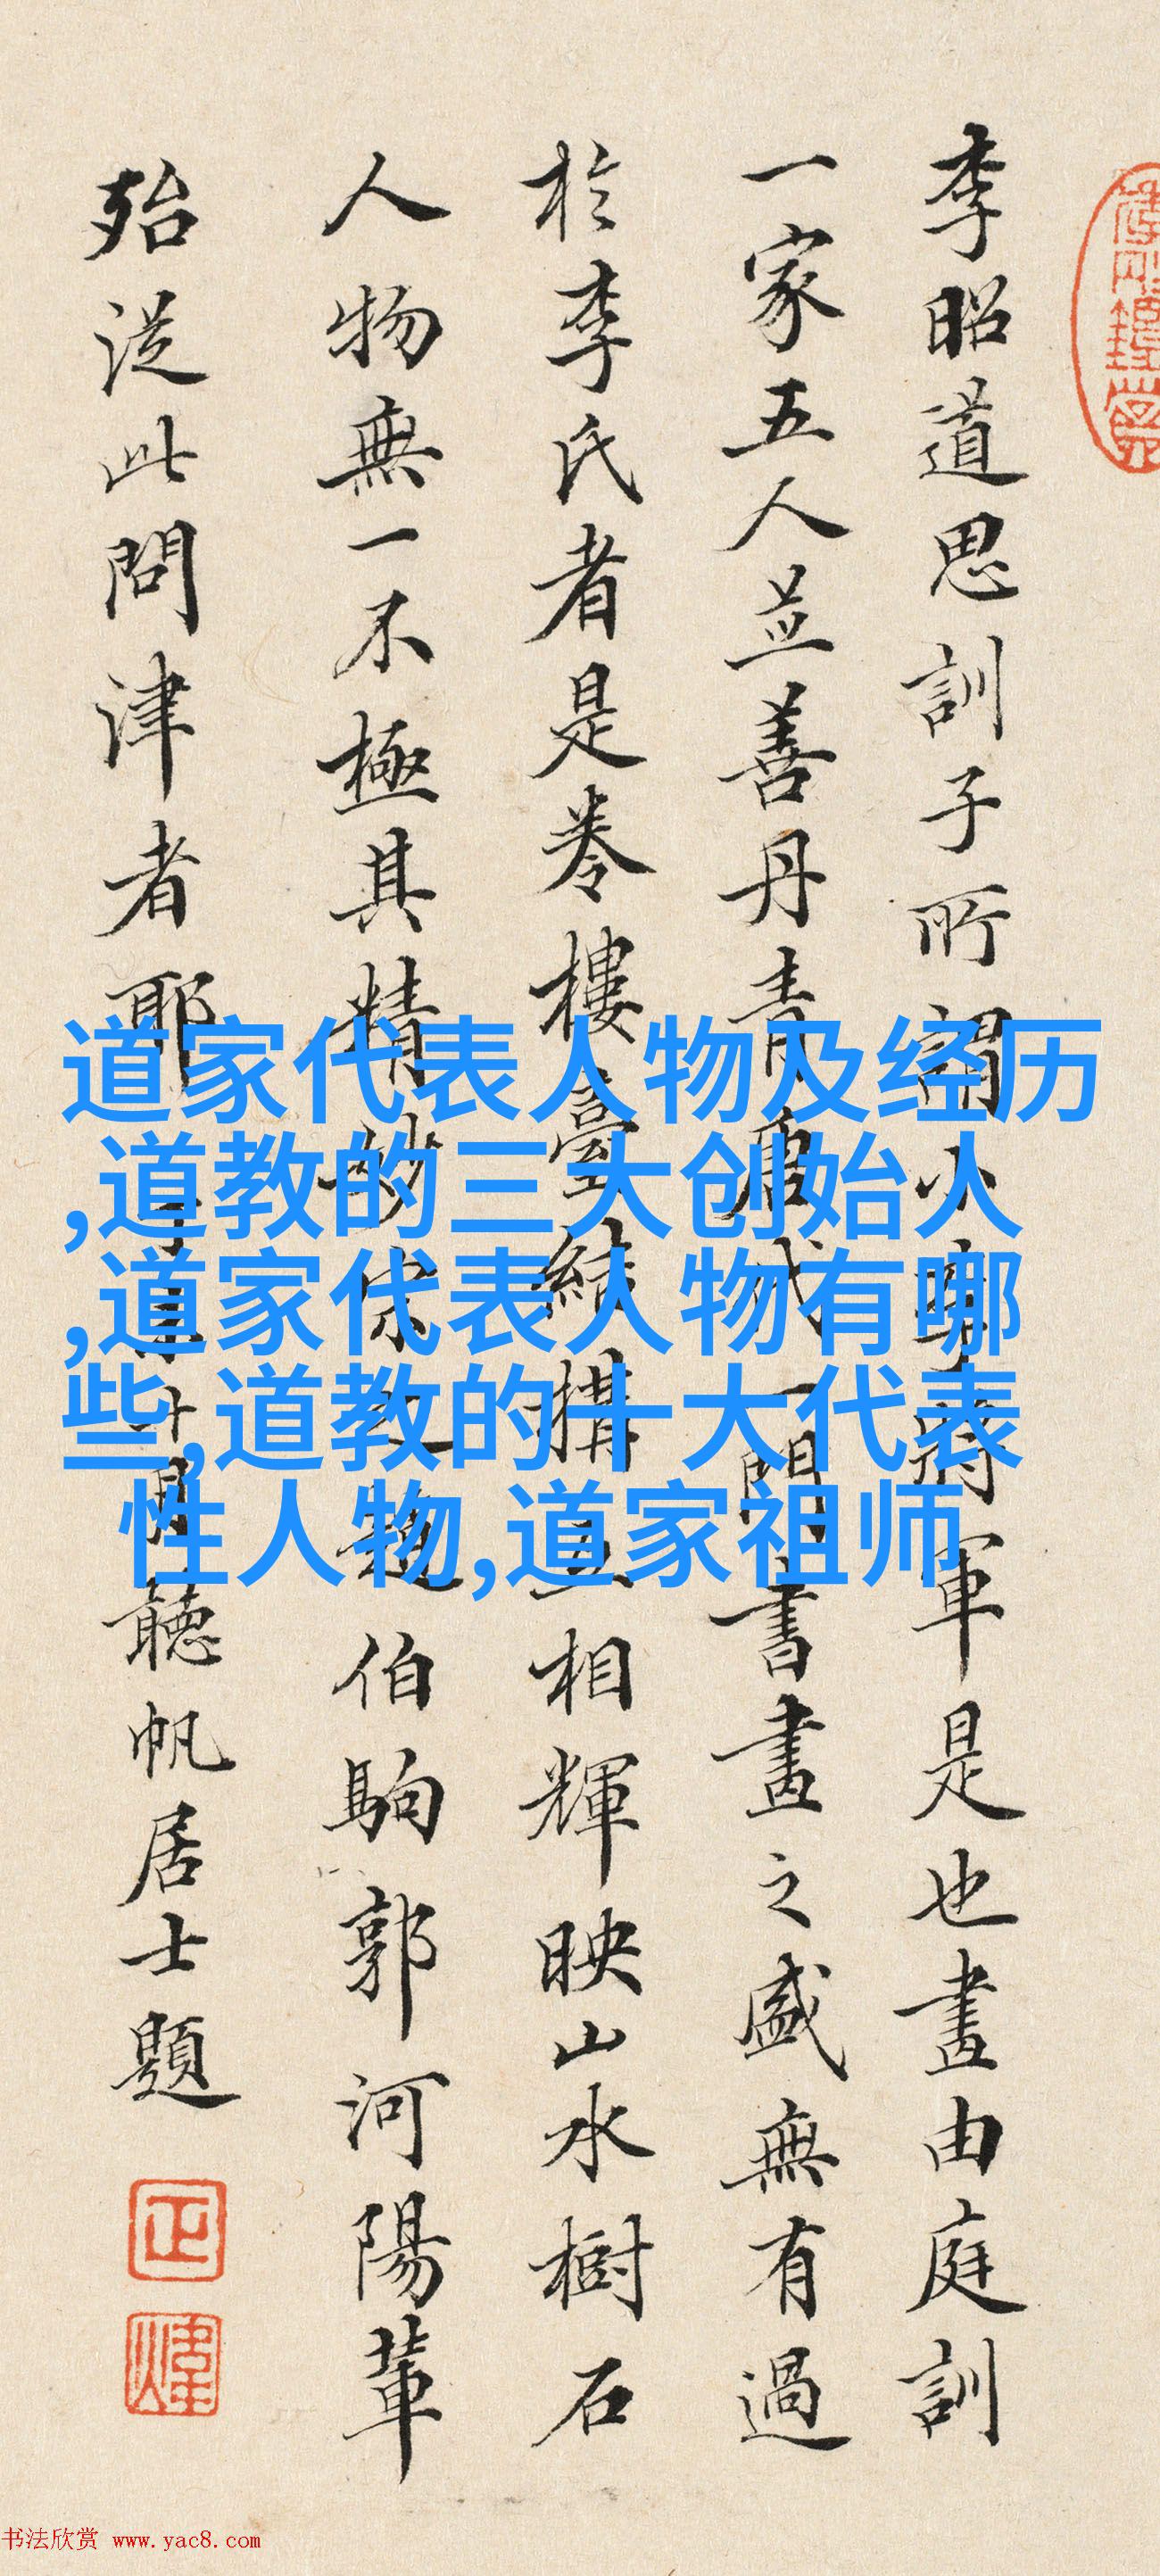 李昭道思訓子所謂小李將軍是也畫由庭訓
一家五人並善丹青唐代一門書畫之盛無有過
於李氏者是卷樓臺結構互相輝映山水樹石
人物無一不極其精妙宋之趙伯駒郭河陽輩
殆從此問津者耶 月聽帆居士題
正
煒
道家代表人物及经历
,道教的三大创始人
,道家代表人物有哪
些,道教的十大代表
性人物,道家祖师
书法欣赏 www.yac8.com